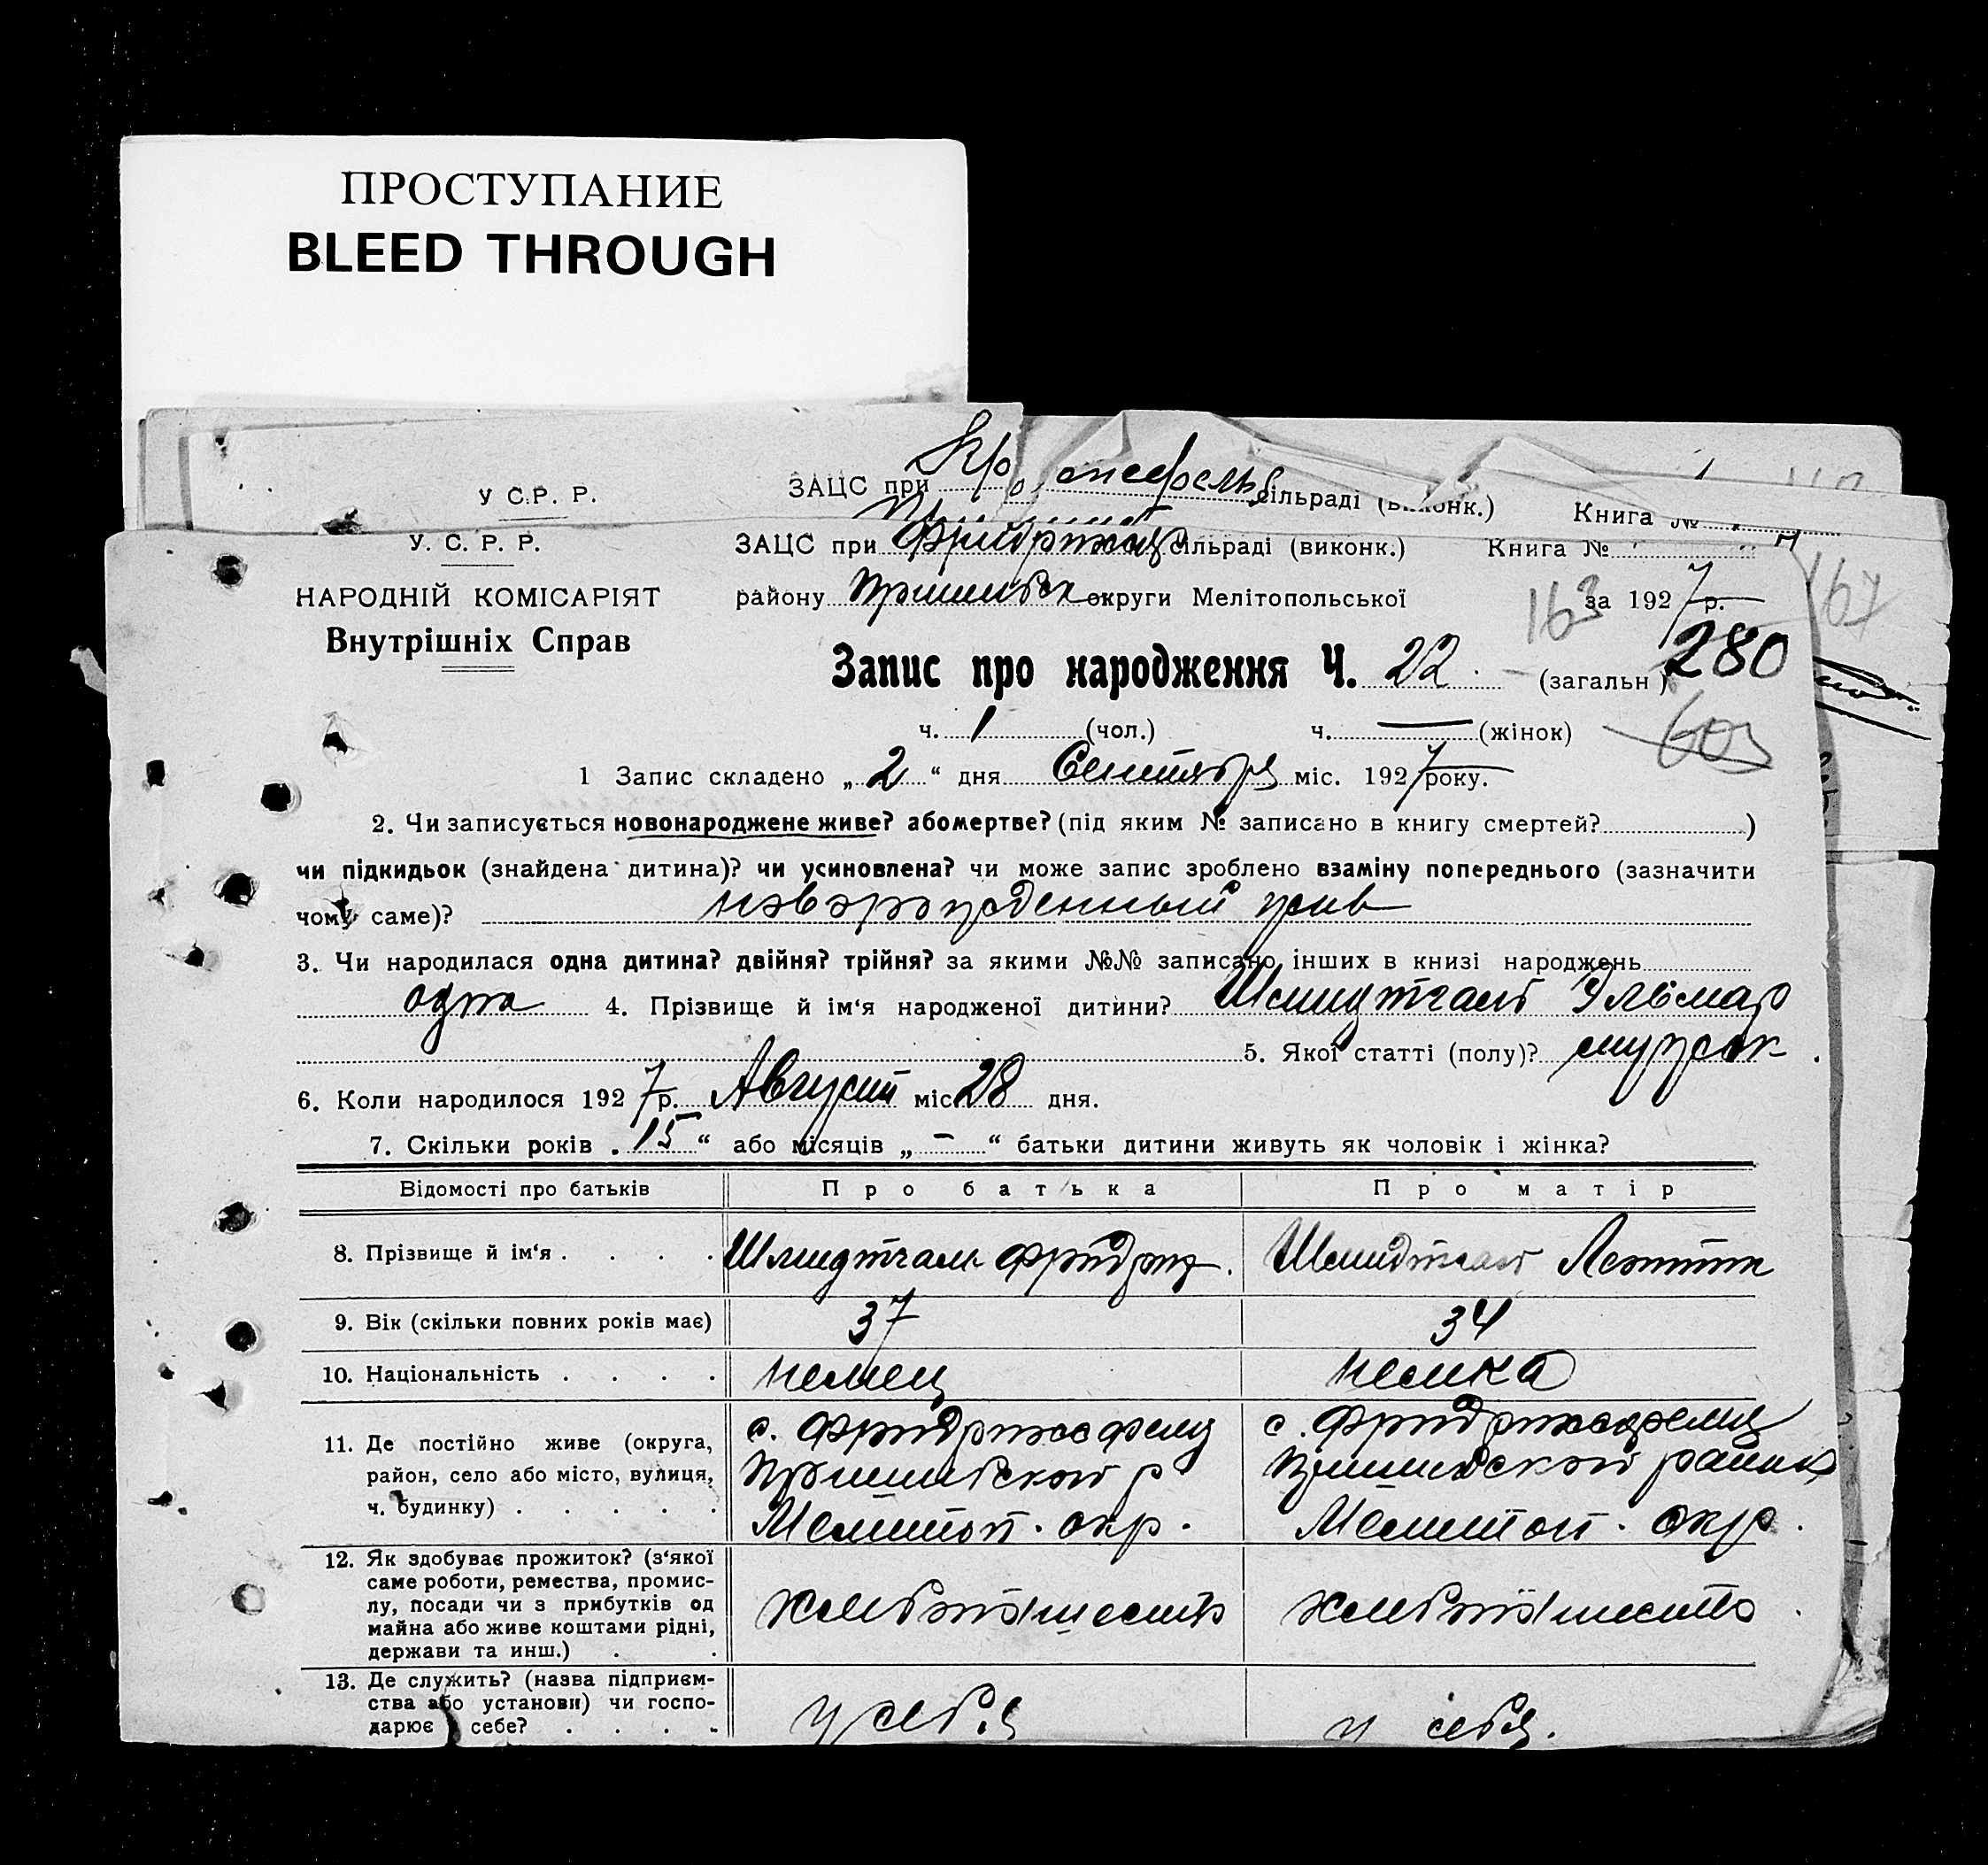 ПРОСТУПАНИЕ
BLEED THROUGH
У С.Р. Р.
ЗАЦС при сільраді (виконк.)
Книга №
У. С. Р. Р.
ЗАЦС при сільраді (виконк.)
Книга №
НАРОДНІЙ КОМІСАРІЯТ
району Пришибск округи Мелітопольської
163
за 1927 р.
167
Внутрішніх Справ
Запис про народження Ч. 22 (загальн) 280
ч. 1 (чол.) ч. — (жінок)
603
1 Запис складено „2“ дня Сентября міс. 1927 року.
2. Чи записується новонароджене живе? або мертве? (під яким № записано в книгу смертей? )
чи підкидьок (знайдена дитина)? чи усиновлена? чи може запис зроблено взаміну попереднього (зазначити
чому саме)? новорожденный жив
3. Чи народилася одна дитина? двійня? трійня? за якими №№ записано інших в книзі народжень
одна 4. Прізвище й ім‘я народженої дитини? Шмидтгаль Эльмар
5. Якої статті (полу)? мужск.
6. Коли народилося 1927 р. Август міс 28 дня.
7. Скільки років „15“ або місяців „—“ батьки дитини живуть як чоловік і жінка?
Відомості про батьків Про батька Про матір
8. Прізвище й ім‘я . . . . Шмидтгаль Фридрих. Шмидтгаль
9. Вік (скільки повних років має) 37 34
10. Національність . . . . немец немка
11. Де постійно живе (округа, с. Фридрихсфельд с. Фридрихсфельд
район, село або місто, вулиця, Пришибского р Пришибского района
ч. будинку) . . . . . Мелитоп. окр. Мелитоп. окр.
12. Як здобуває прожиток? (з‘якої
саме роботи, ремества, промис-
лу, посади чи з прибутків од хлебопашество хлебопашество
майна або живе коштами рідні,
держави та инш.) . .
13. Де служить? (назва підприєм-
ства або установи) чи госпо- у себя у себя.
дарює у себе? . . . .